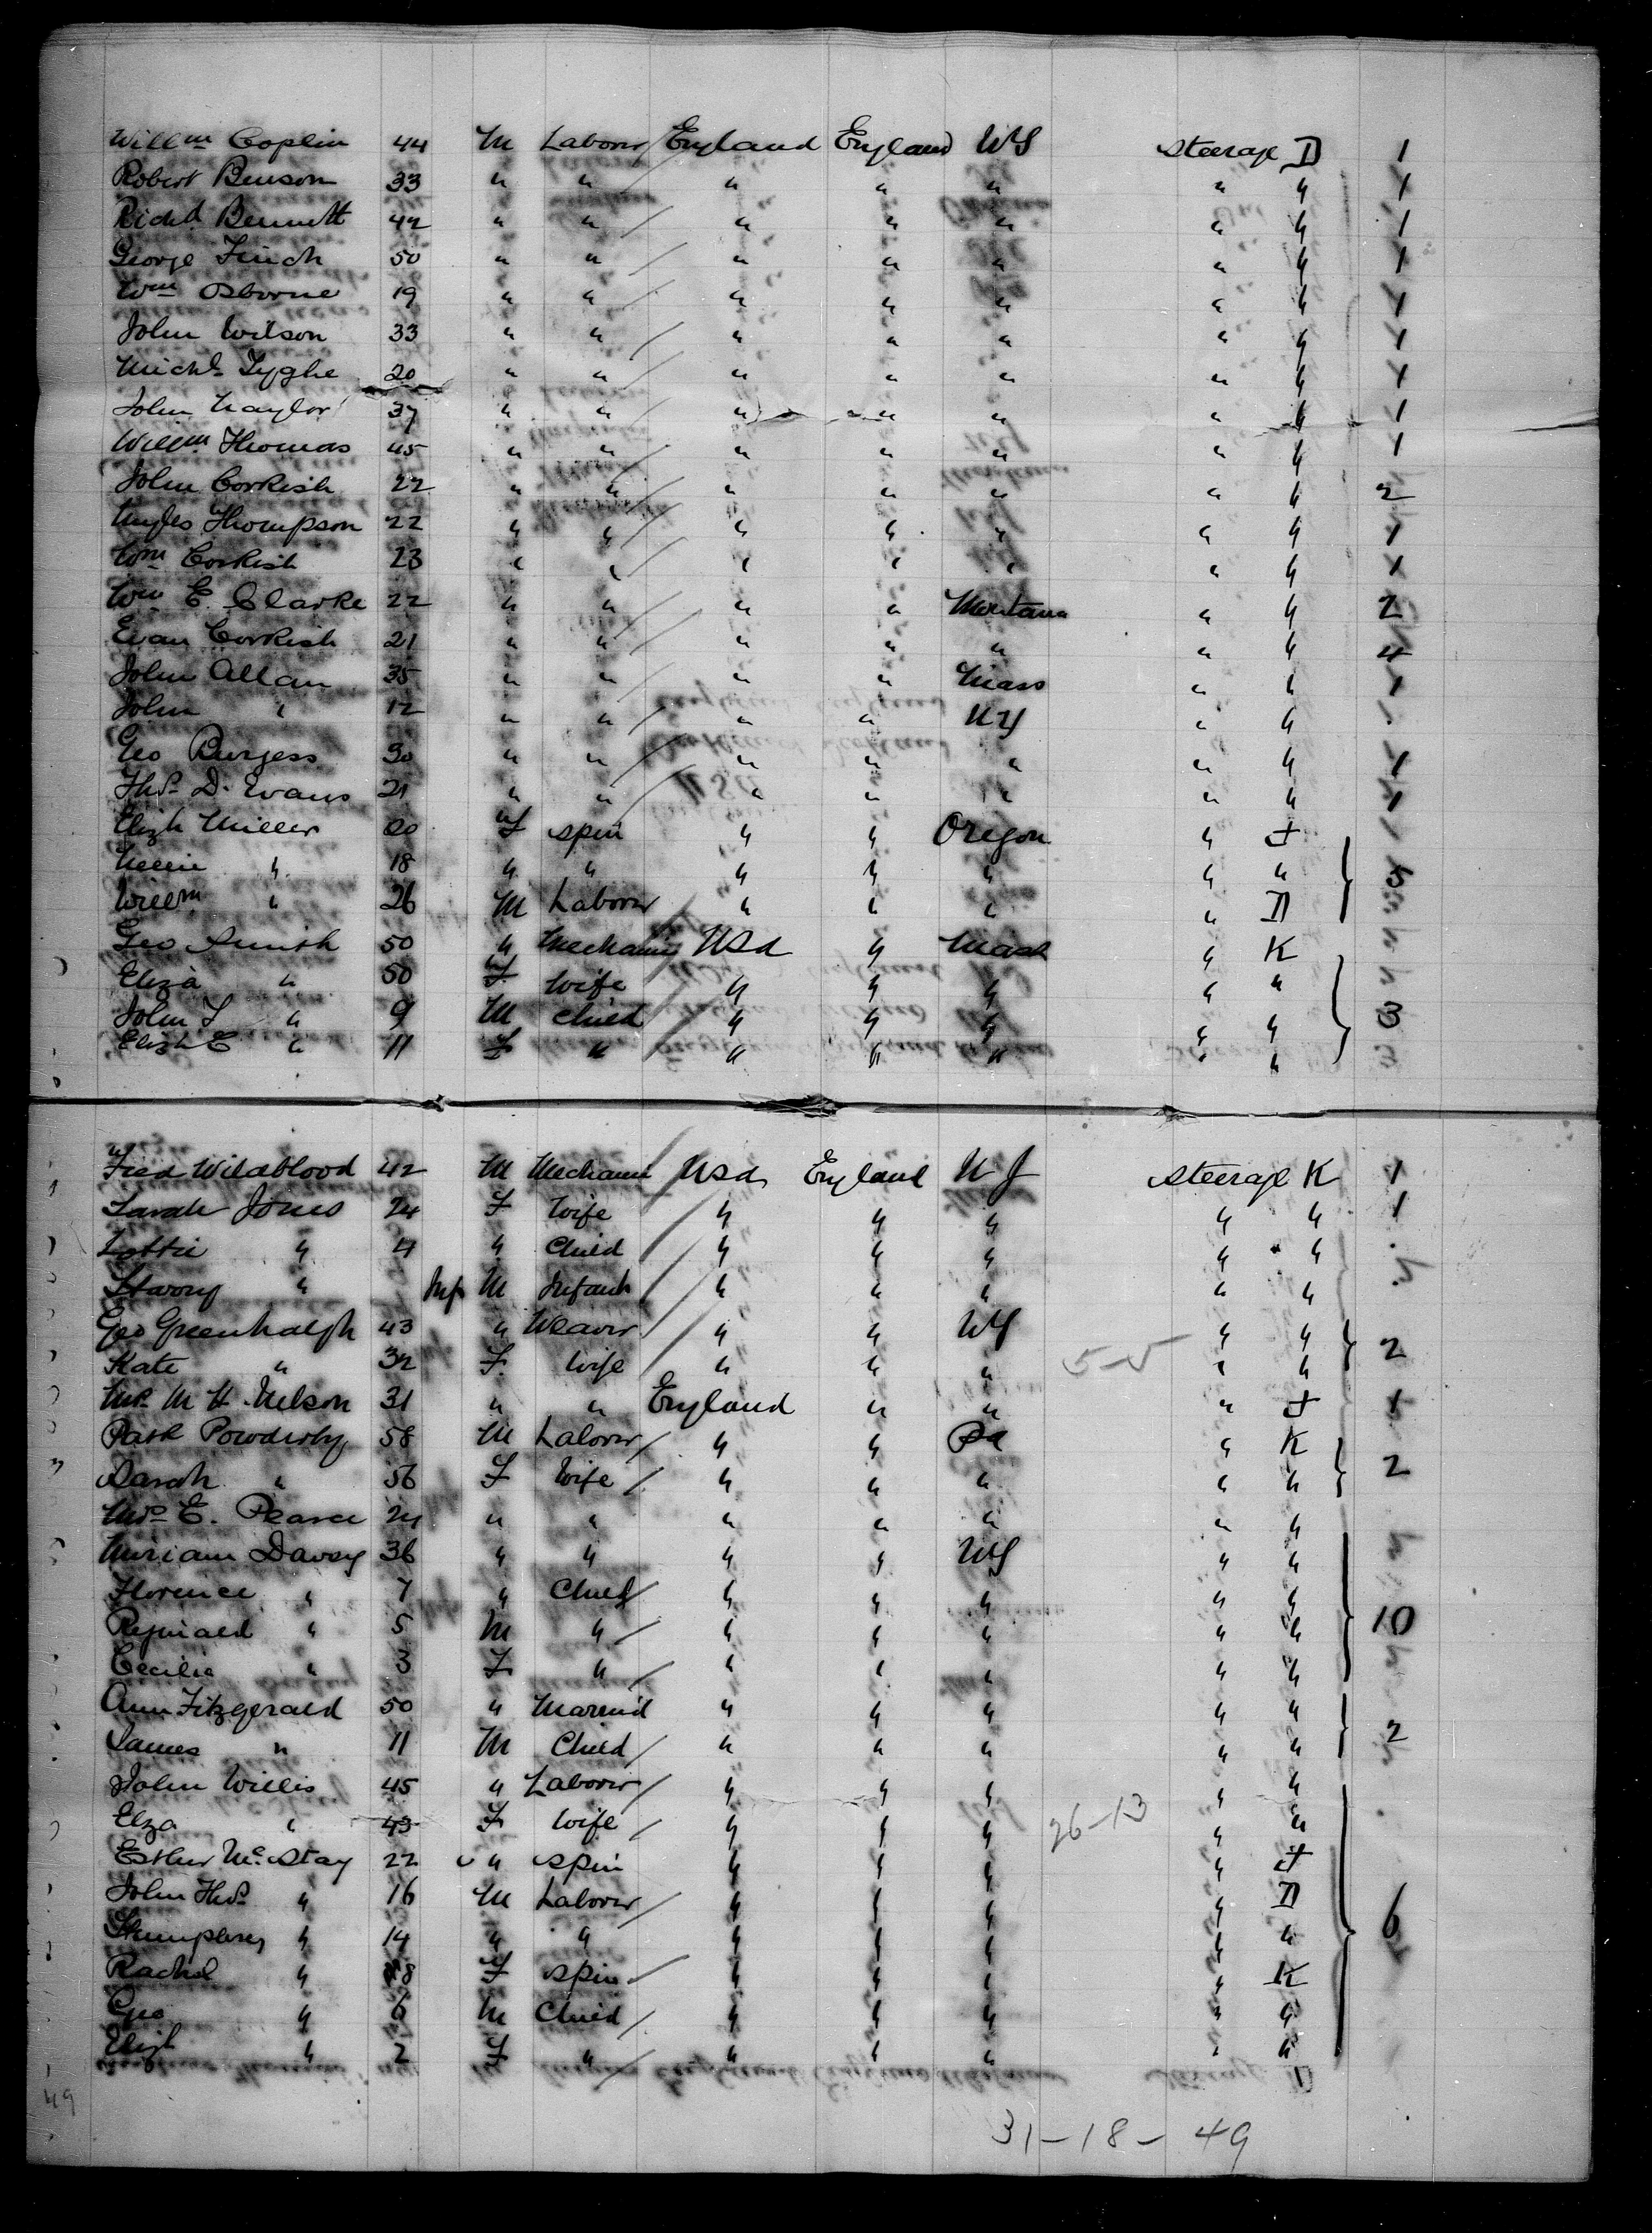 Willm Coplin 44 M Laborer England England NY Steerage D 1
Robert Benson 33 " " " " " " " 1
Richd. Bennett 42 " " " " " " " 1
George Finch 50 " " " " " " " 1
Wm Osborne 19 " " " " " " " 1
John Wilson 33 " " " " " " " 1
Michl. Tyghe 20 " " " " " " " 1
John Naylor 37 " " " " " " " 1
Willm Thomas 45 " " " " " " " 1
John Corkish 22 " " " " " " " 2
Myles Thompson 22 " " " " " " " 1
Wm Corkish 23 " " " " " " " 1
Wm E. Clarke 22 " " " " Montana " " 2
Evan Corkish 21 " " " " " " " 4
John Allan 35 " " " " Mass " " 1
John " 12 " " " " NY " "
Geo Burgess 30 " " " " " " " 1
Thos. D. Evans 21 " " " " " " " 1
Elizh Miller 20 F spin " " Oregon "
Nellie " 18 " " " " " " " 3
Willm " 26 M Laborer " " " " D
Geo Smith 50 " Mechanic USA " Mass " K
Eliza " 50 F Wife " " " " "
John T " 9 M Child " " " " " 3
Elizh E " 11 F " " " " " "
Fred Wildblood 42 M Mechanic USA England NJ Steerage K 1
Sarah Jones 24 F Wife " " " " " 1
Lottie " 4 " Child " " " " "
Harry " Inf M Infant " " " " "
Geo Greenhalgh 43 " Weaver " " NY " "
Kate " 32 F. Wife " " " 5-5 " " 2
Mrs. M H. Nelson 31 " " England " " " 1
Patk Powderly 58 M Laborer " " Pa " K
Sarah " 56 F Wife " " " " " 2
Mrs E. Pearce 24 " " " " " " "
Miriam Davey 36 " " " " NY " "
Florence " 7 " Child " " " " "
Reginald " 5 M " " " " " " 10
Cecilia " 3 F " " " " " "
Ann Fitzgerald 50 " Married " " " " "
James " 11 M Child " " " " " 2
John Willis 45 " Laborer " " " " "
Elza " 43 F Wife " " " 26-13 " "
Esther McStay 22 " spin " " " "
John Thos. " 16 M Laborer " " " " D 6
Humphrey " 14 " " " " " " "
Rachel " 8 F spin " " " " K
Geo " 6 M Child " " " " "
Elizh " 2 F " " " " " "
49
31-18-49